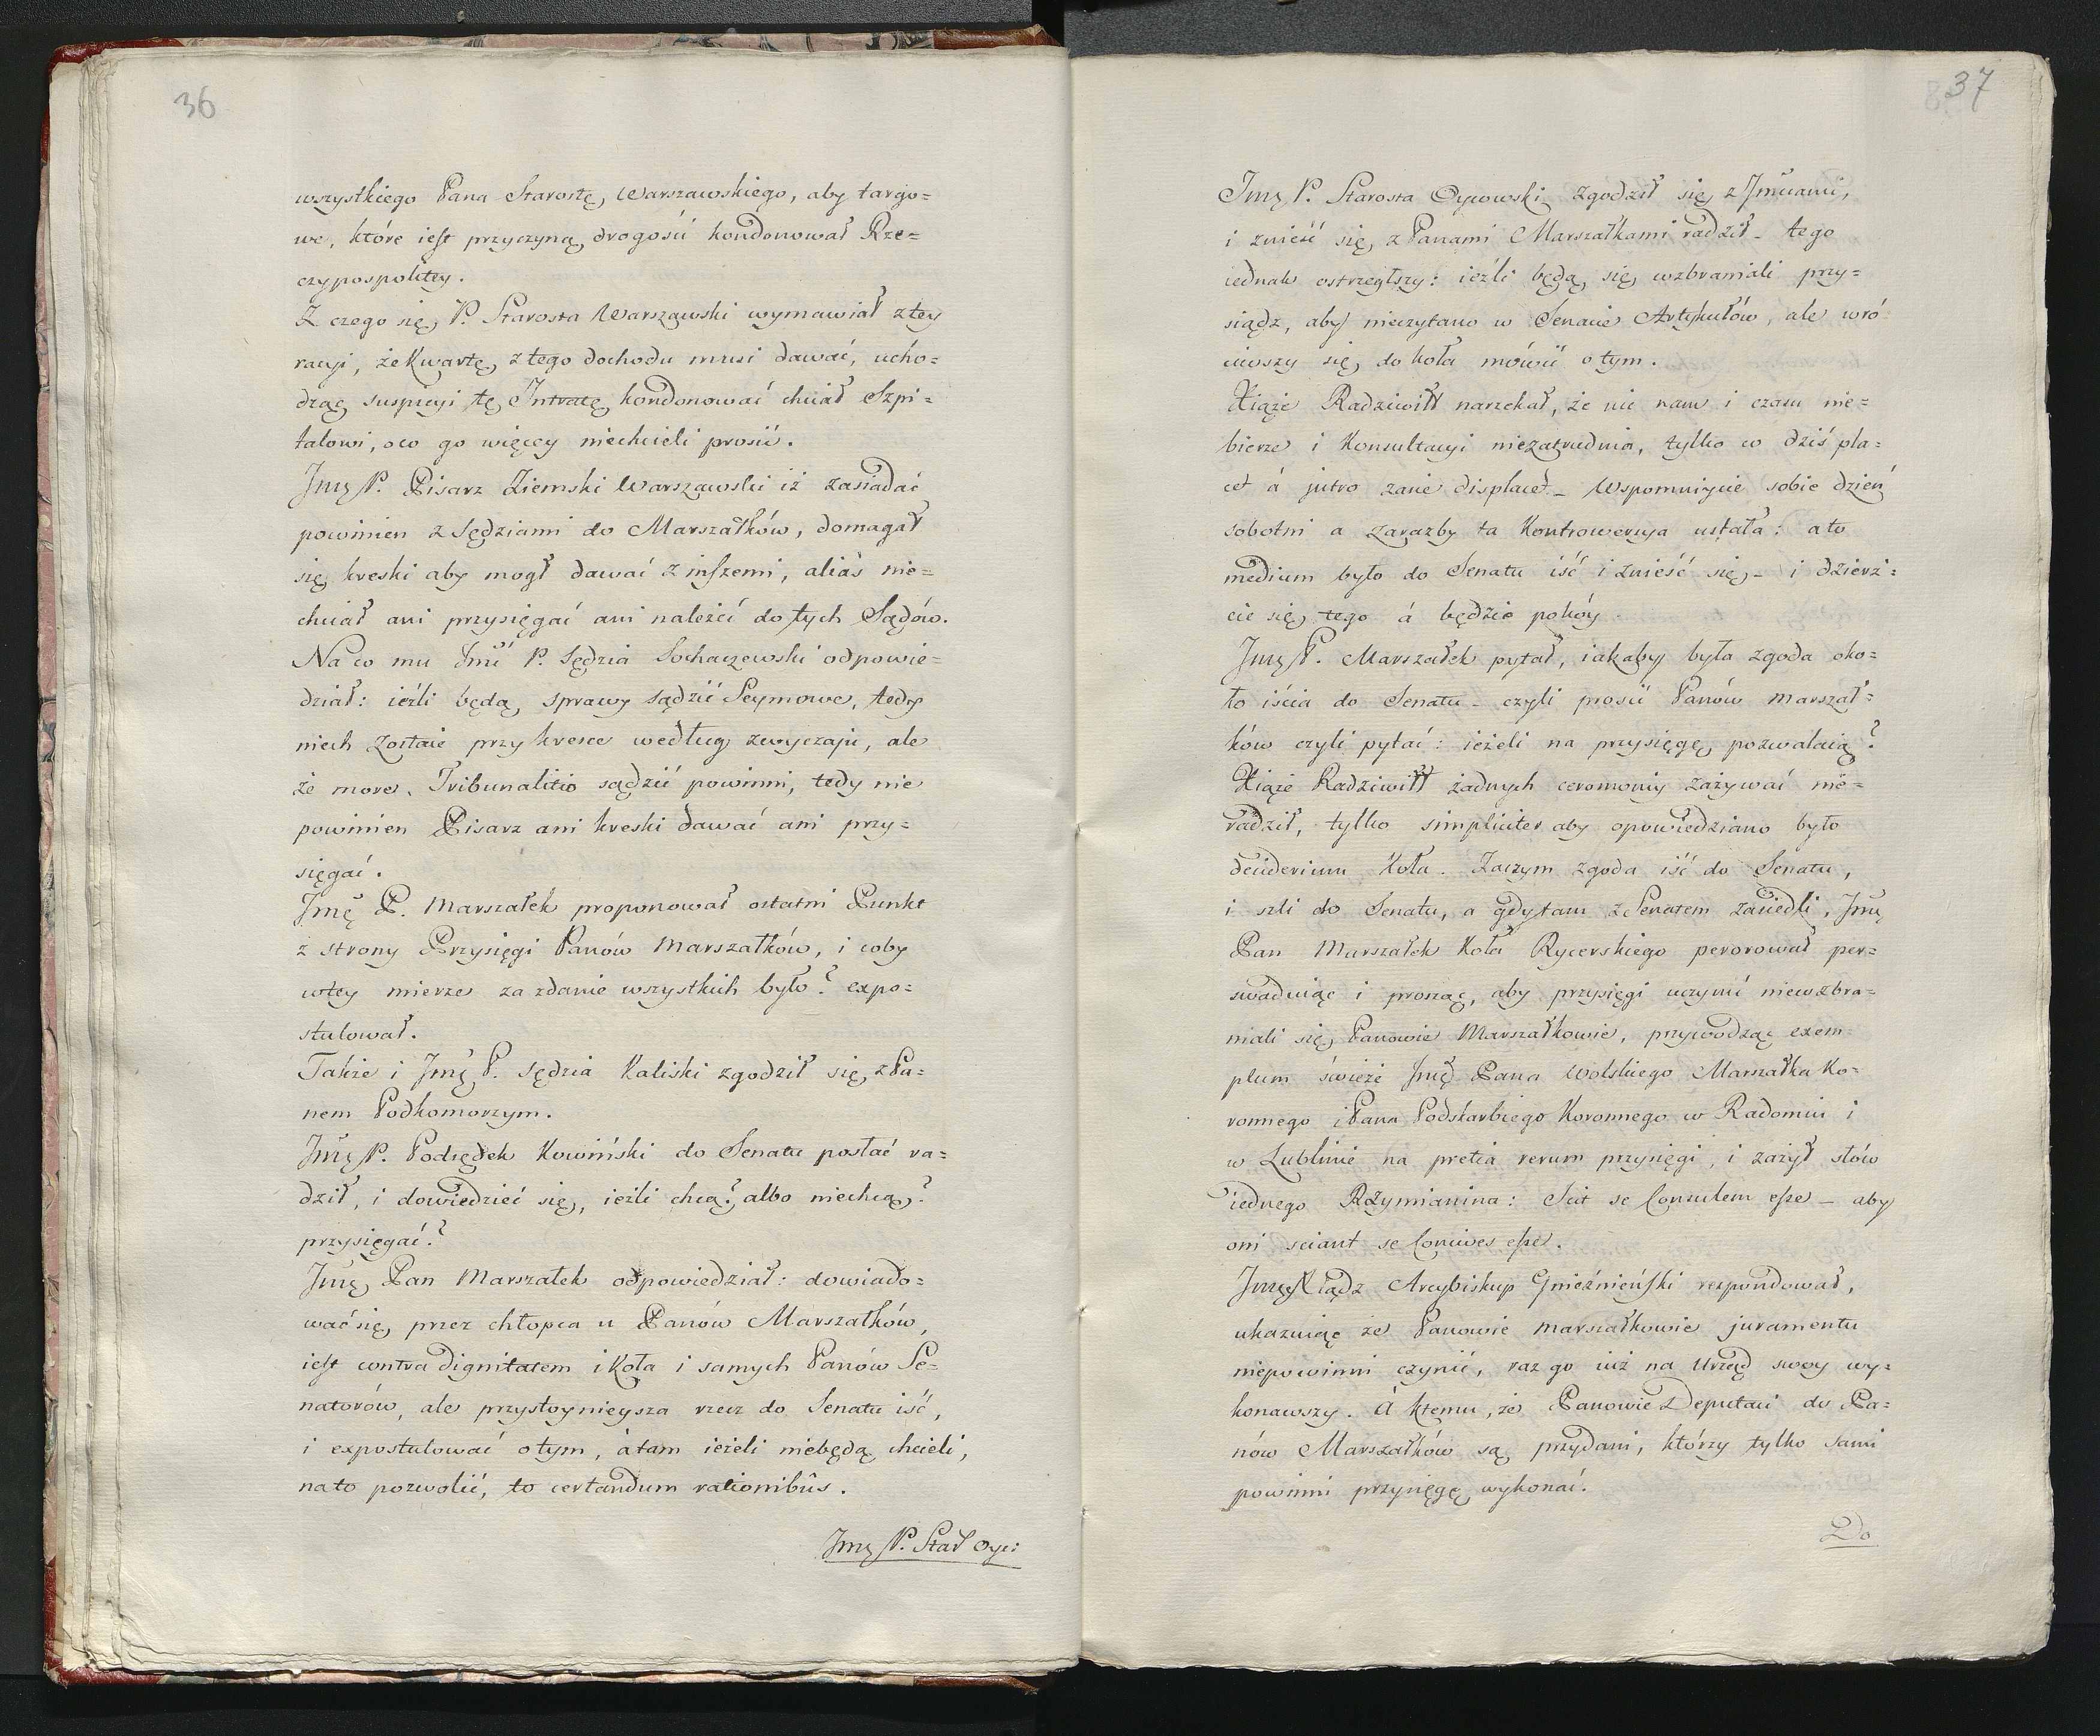 36
wszystkiego Pana Starostę Warszawskiego, aby targo=
we, które iest przyczyną drogości kondonował Rze=
czypospolitey.
Z czego się P. Starosta Warszawski wymawiał z tey
racyi, że Kwartę z tego dochodu musi dawać, ucho=
dząc suspicyi tę Intratę kondonować chciał Szpi=
talowi, oco go więcey niechcieli prosić.
Jmę P. Pisarz Ziemski Warszawski iż zasiadać
powinien z Sędziami do Marszałków, domagał
się kreski aby mogł dawać z inszemi, aliàs nie=
chciał ani przysięgać ani należeć do tych Sądów.
Na co mu Jmć P. Sędzia Sochaczewski odpowie=
dział: ieźli będą sprawy sądzić Seymowe, tedy
niech zostaie przy kresce według zwyczaju, ale
że more Tribunalitio sądzić powinni, tedy nie
powinien Pisarz ani kreski dawać ani przy=
sięgać.
Jmę P. Marszałek proponował ostatni Punkt
z strony Przysięgi Panów Marszałków, i coby
wtey mierze za zdanie wszystkich było? expo=
stulował.
Także i Jmę P. Sędzia Kaliski zgodził się z Pa=
nem Podkomorzym.
Jmę P. Podsędek Kowiński do Senatu posłać ra=
dził, i dowiedzieć się, ieźli chcą? albo niechcą?
przysięgać?
Jmę Pan Marszałek odpowiedział: dowiado=
wać się przez chłopca u Panów Marszałków,
iest contra dignitatem i Koła i samych Panów Se=
natorów, ale przystoynieysza rzecz do Senatu iść,
i expostulować o tym, à tam ieżeli niebędą chcieli,
na to pozwolić, to certandum rationibûs.
Jmę P. Star Oyc:
37
Jmę P. Starosta Oycowski zgodził się z Jmciami,
i znieść się z Panami Marszałkami radził - tego
iednak ostrzegłszy: ieźli będą się wzbraniali przy=
siądz, aby nieczytano w Senacie Artykułów, ale wró
ciwszy się do koła mówić o tym.
Xiąże Radziwiłł narzekał, że nic nam i czasu nie=
bierze i Konsultacyi niezatrudnia, tylko co dziś pla=
cet á jutro zaś displacet - Wspomniycie sobie dzień
sobotni a zarazby ta Kontrowersya ustała: a to
medium było do Senatu iść i znieść się - i dzierż=
cie się tego á będzie pokóy.
Jmę P. Marszałek pytał, iakaby była zgoda oko=
ło iścia do Senatu - czyli prosić Panów Marszał=
ków czyli pytać: ieżeli na przysięgę pozwalaią?
Xiąże Radziwiłł żadnych ceremoniy zażywać nie=
radził, tylko simpliciter aby opowiedziano było
desiderium Koła. Zaczym zgoda iść do Senatu,
i szli do Senatu, a gdy tam z Senatem zasiedli, Jmę
Pan Marszałek Koła Rycerskiego perorował per=
swaduiąc i prosząc, aby przysięgi uczynić niewzbra=
niali się Panowie Marszałkowie, przywodząc exem=
plum świeże Jmę Pana Wolskiego Marszałka Ko=
ronnego i Pana Podskarbiego Koronnego w Radomiu i
w Lublinie na pretia rerum przysięgi, i zażył słów
iednego Rzymianina: Scit se Consulem esse - aby
oni sciant se Conives esse.
Jmę Xiądz Arcybiskup Gnieźnieński respondował,
ukazuiąc że Panowie Marszałkowie juramentu
niepowinni czynić, raz go iuż na Urząd swoy wy=
konawszy. A ktemu, że Panowie Deputaci do Pa=
nów Marszałków są przydani, którzy tylko sami
powinni przysięgę wykonać.
Do